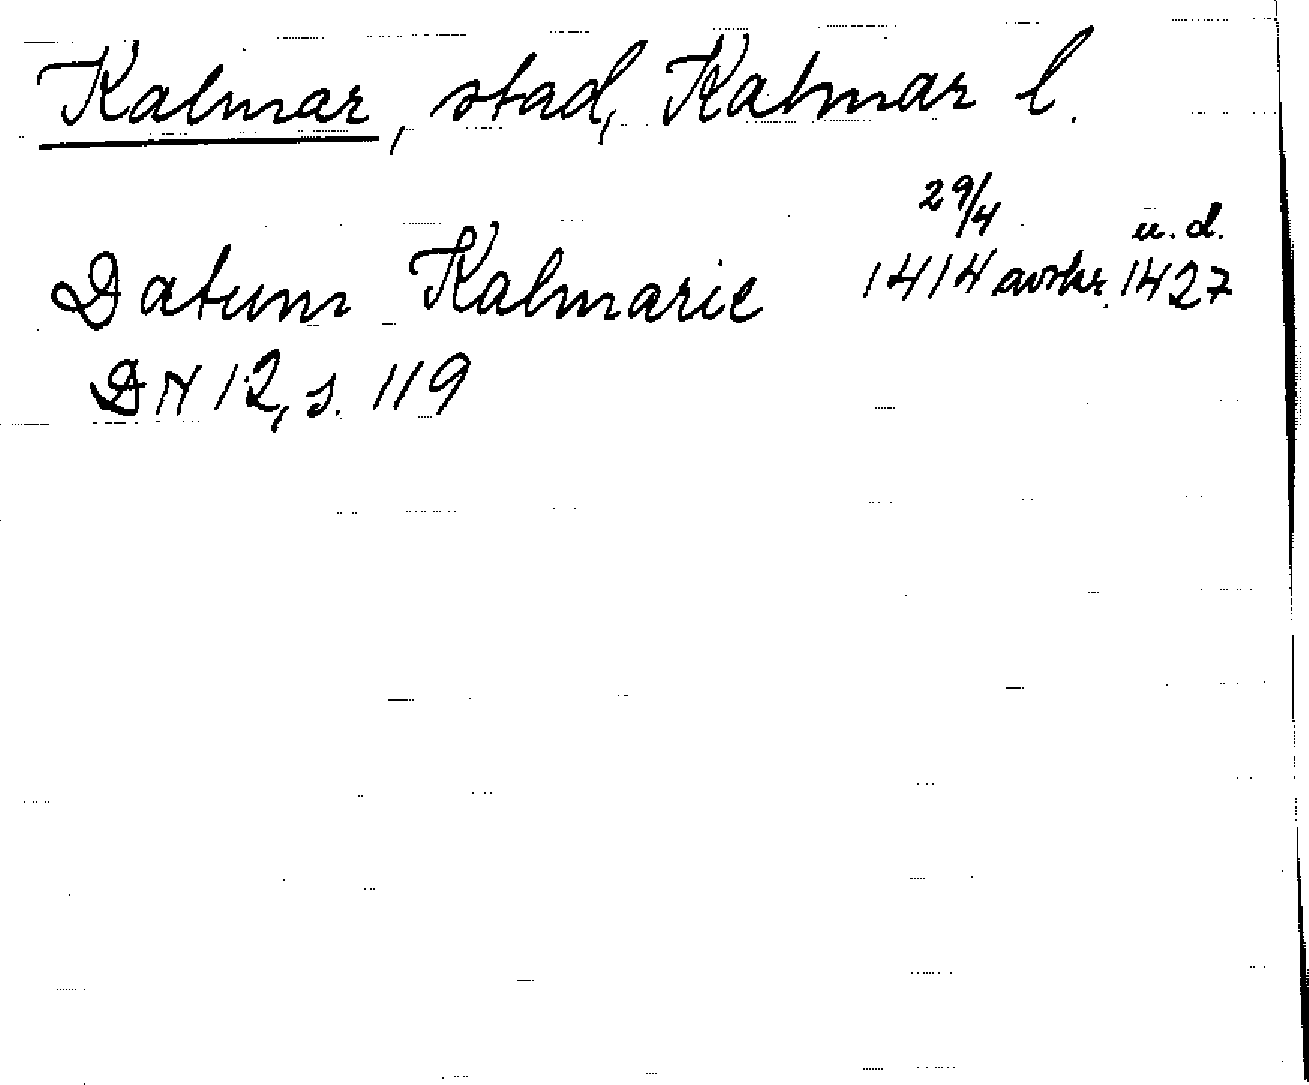 Kalmar, stad, Kalmar l.
29/4 u.d.
Datum Kalmarie 1414 avskr. 1427
DN 12, s. 119